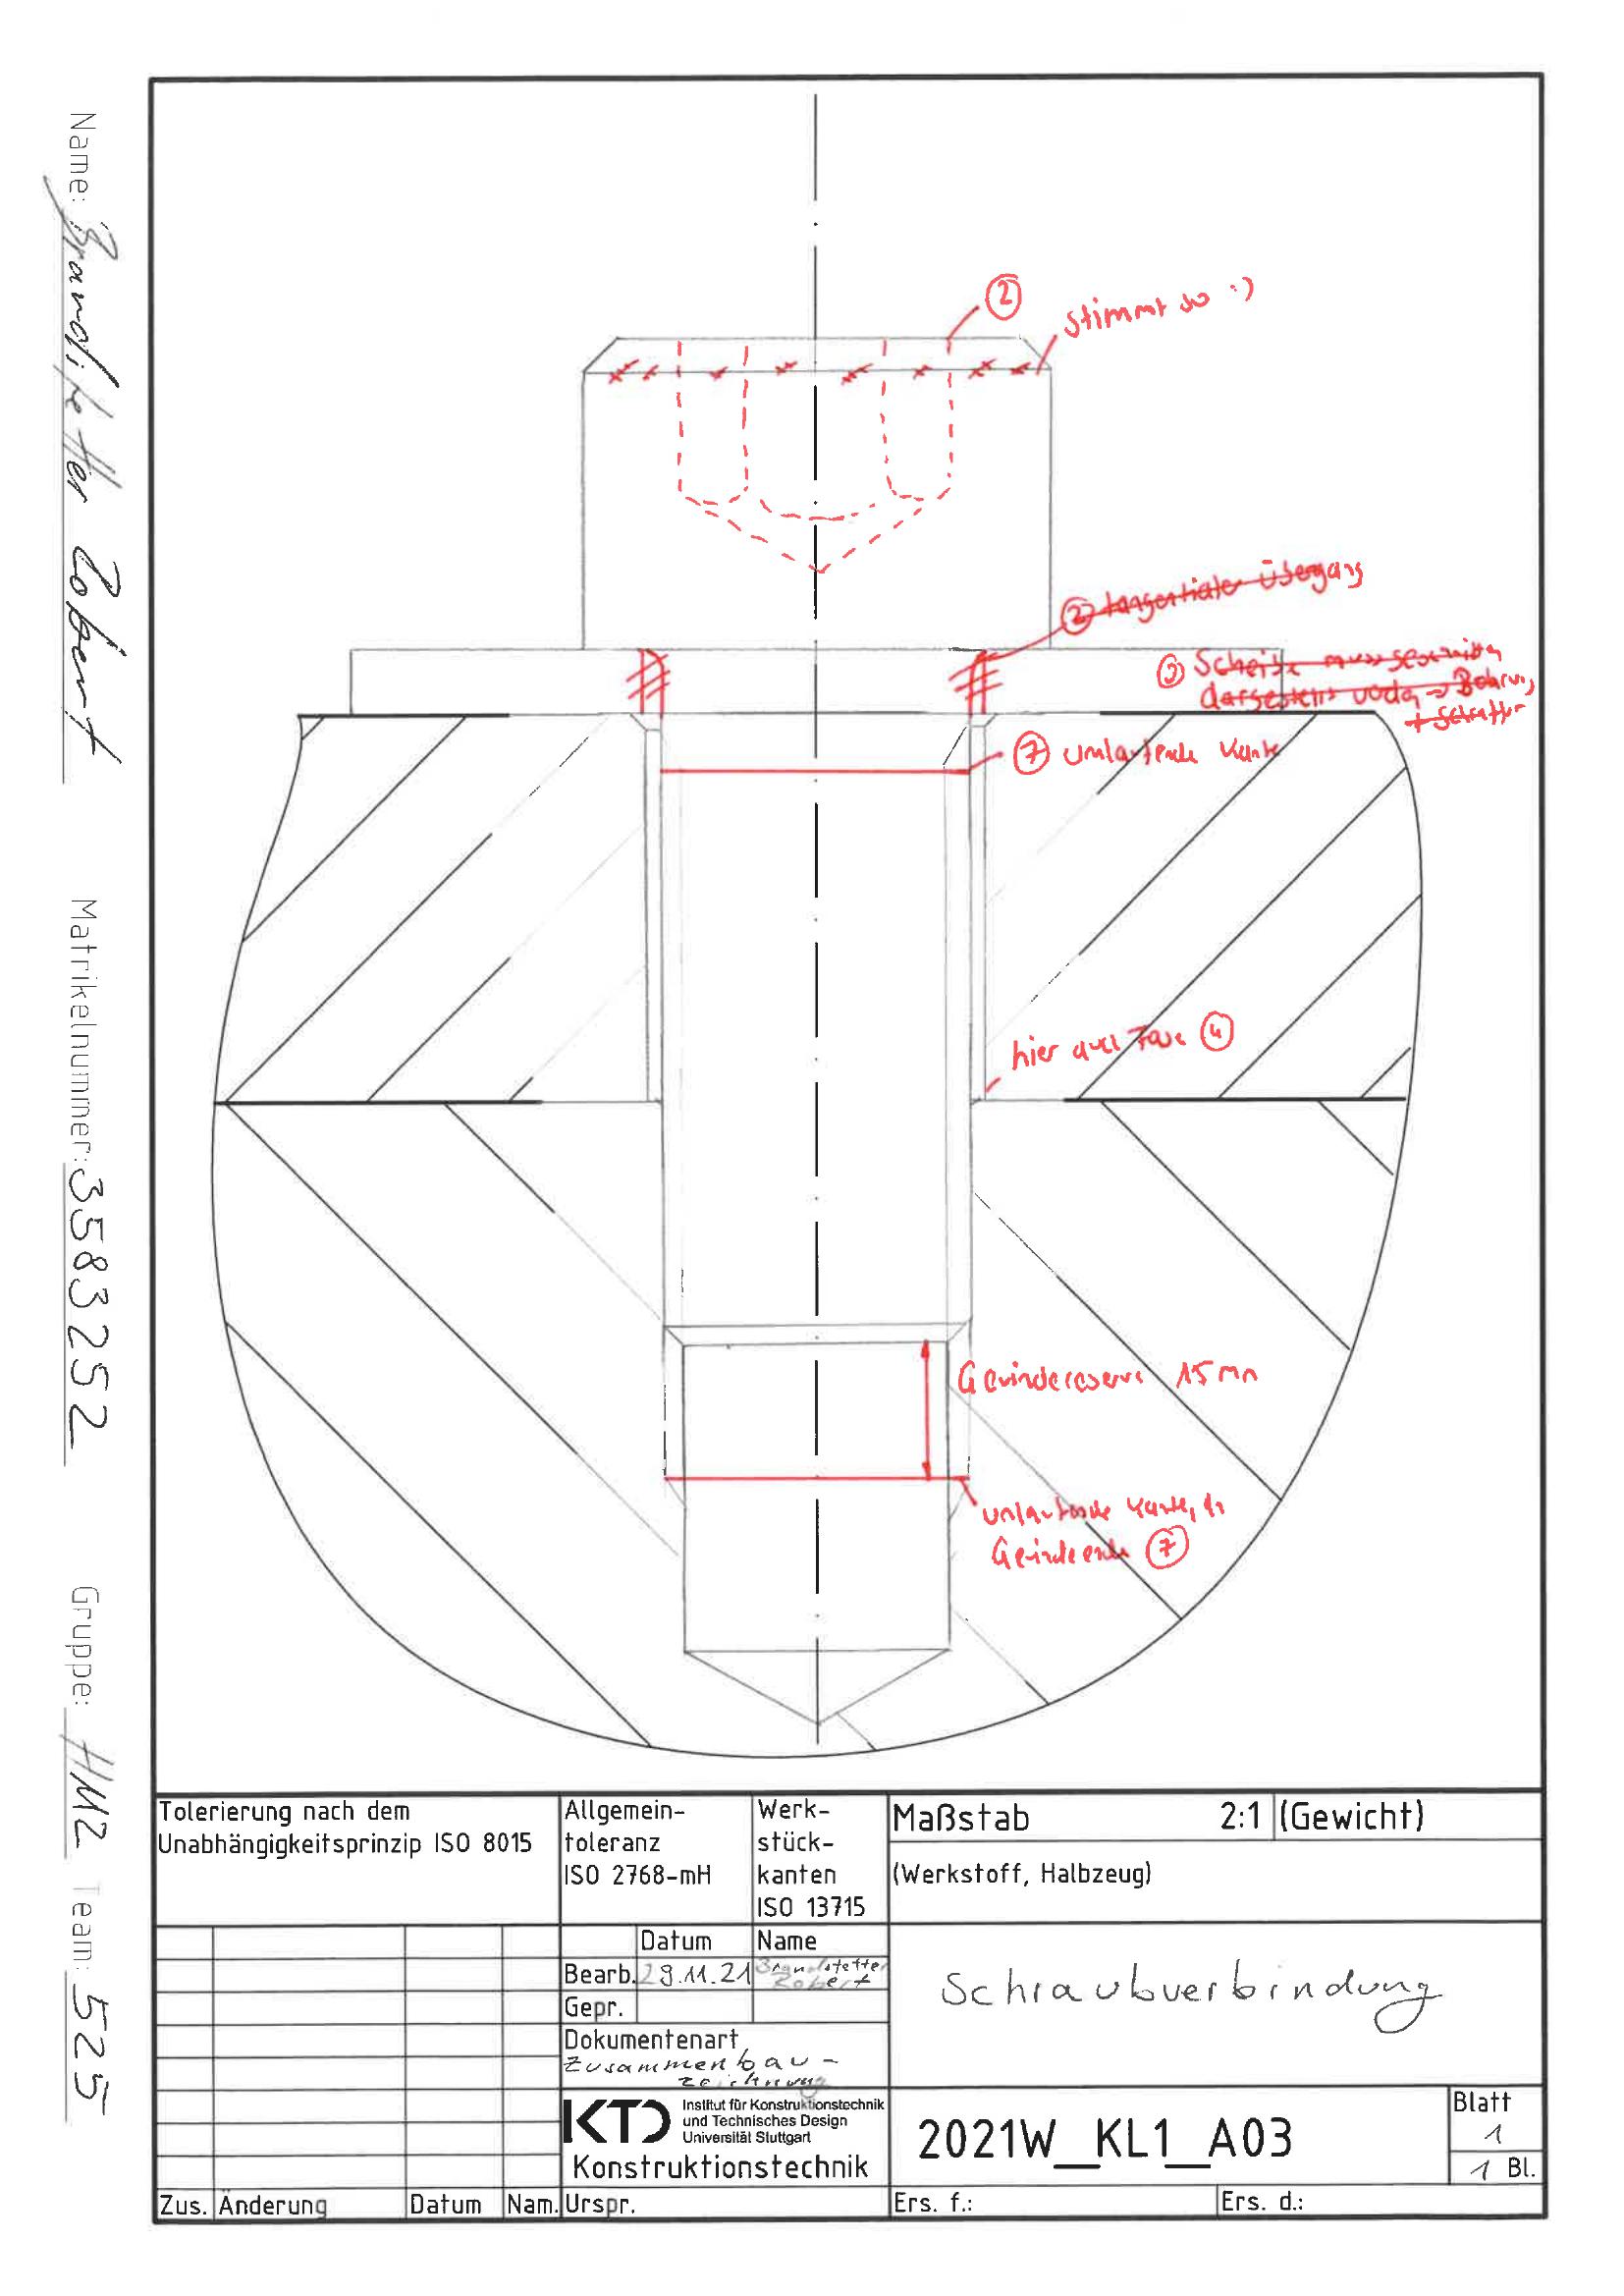 Name: Brandstetter Robert
Matrikelnummer: 3583252
Gruppe: HM2 Team: 525
②
stimmt so :)
② tangentialer Übergang
③ Scheibe muss geschnitten
dargestellt werden → Bohrung
+ Schraffur
⑦ umlaufende Kante
hier auch Fase ④
Gewindereserve 15mm
umlaufende Kante, da
Gewindeende ⑦
Tolerierung nach dem
Unabhängigkeitsprinzip ISO 8015
Allgemein-
toleranz
ISO 2768-mH
Werk-
stück-
kanten
ISO 13715
Maßstab 2:1 (Gewicht)
(Werkstoff, Halbzeug)
Datum Name
Bearb. 29.11.21 Brandstetter
Robert
Gepr.
Dokumentenart
Zusammenbau-
zeichnung
Schraubverbindung
KTD Institut für Konstruktionstechnik
und Technisches Design
Universität Stuttgart
Konstruktionstechnik
2021W_KL1_A03
Blatt
1
1 Bl.
Zus. Änderung Datum Nam. Urspr. Ers. f.: Ers. d.: